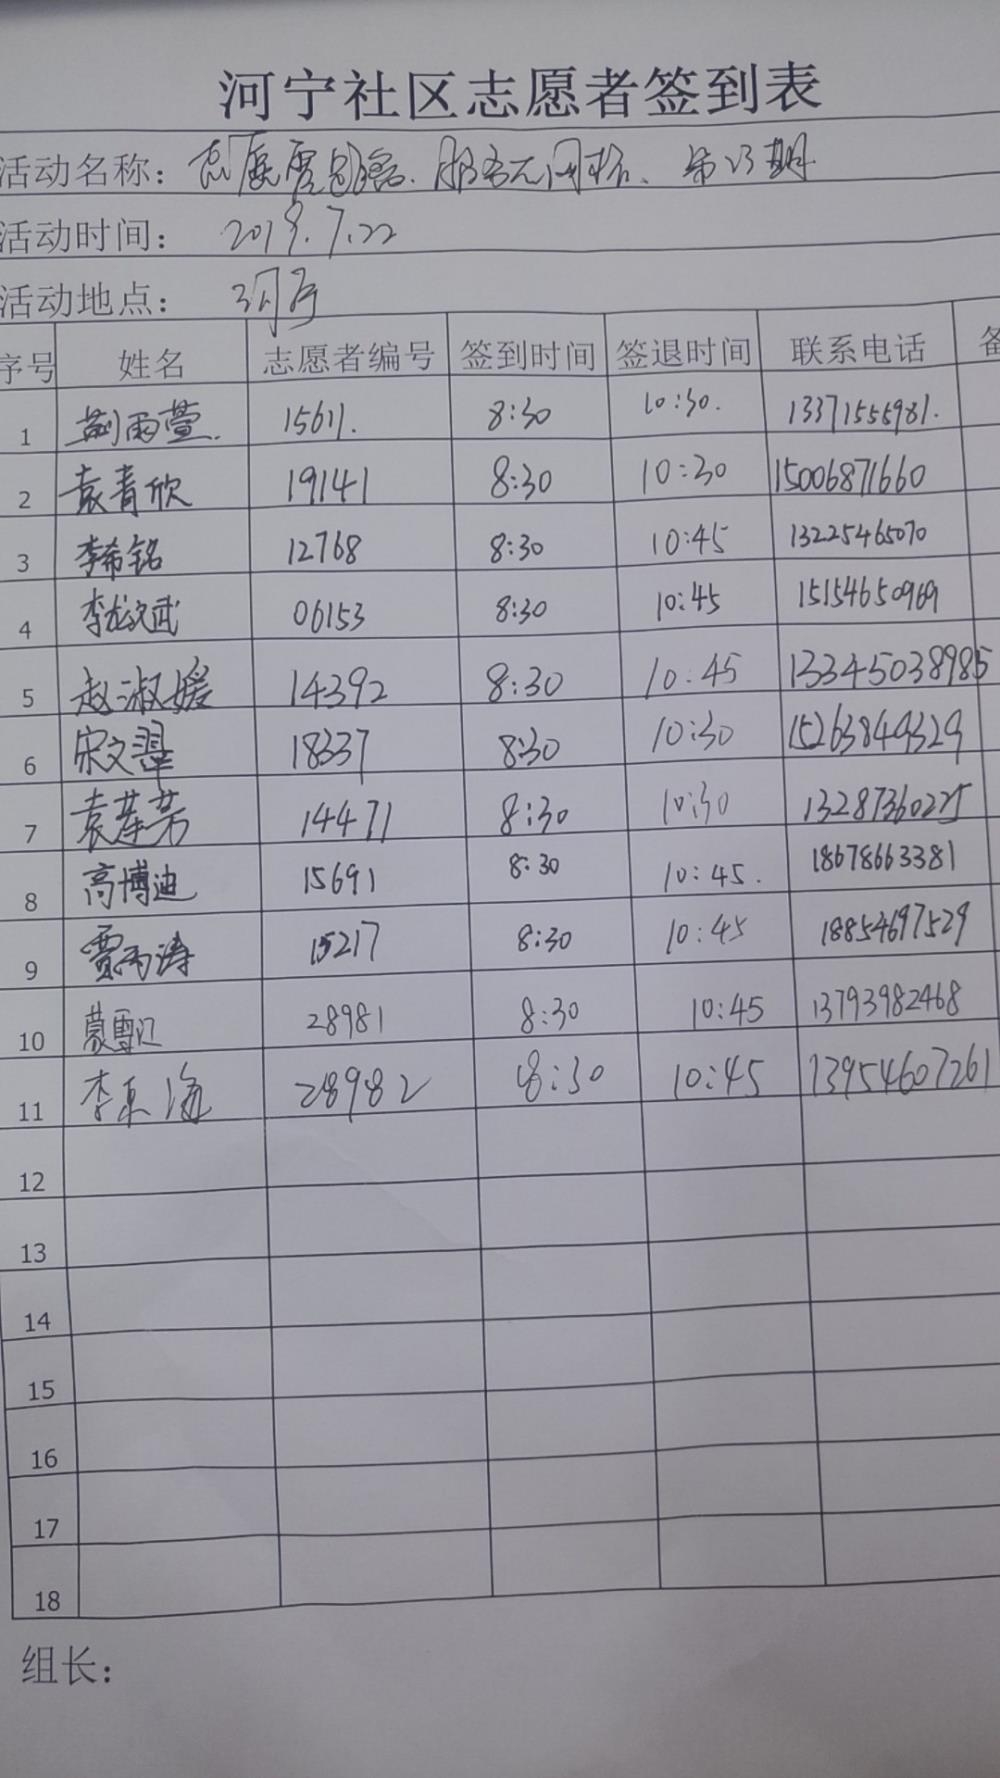 河宁社区志愿者签到表
活动名称：志愿零距离、服务无闲格、第13期
活动时间：2019.7.22
活动地点：河宁
序号 姓名 志愿者编号 签到时间 签退时间 联系电话 备
1 荆雨萱. 15611. 8:30 10:30. 13371555981.
2 袁青欣 19141 8:30 10:30 15006871660
3 李希铭 12768 8:30 10:45 13225465070
4 李龙武 06153 8:30 10:45 15154650969
5 赵淑媛 14392 8:30 10:45 13345038985
6 宋文翠 18337 8:30 10:30 15263849329
7 袁莲芳 14471 8:30 10:30 13287360225
8 高博迪 15691 8:30 10:45. 18678663381
9 贾雨涛 15217 8:30 10:45 18854697529
10 28981 8:30 10:45 13793982468
11 李东海 28982 8:30 10:45 13954607261
12
13
14
15
16
17
18
组长：